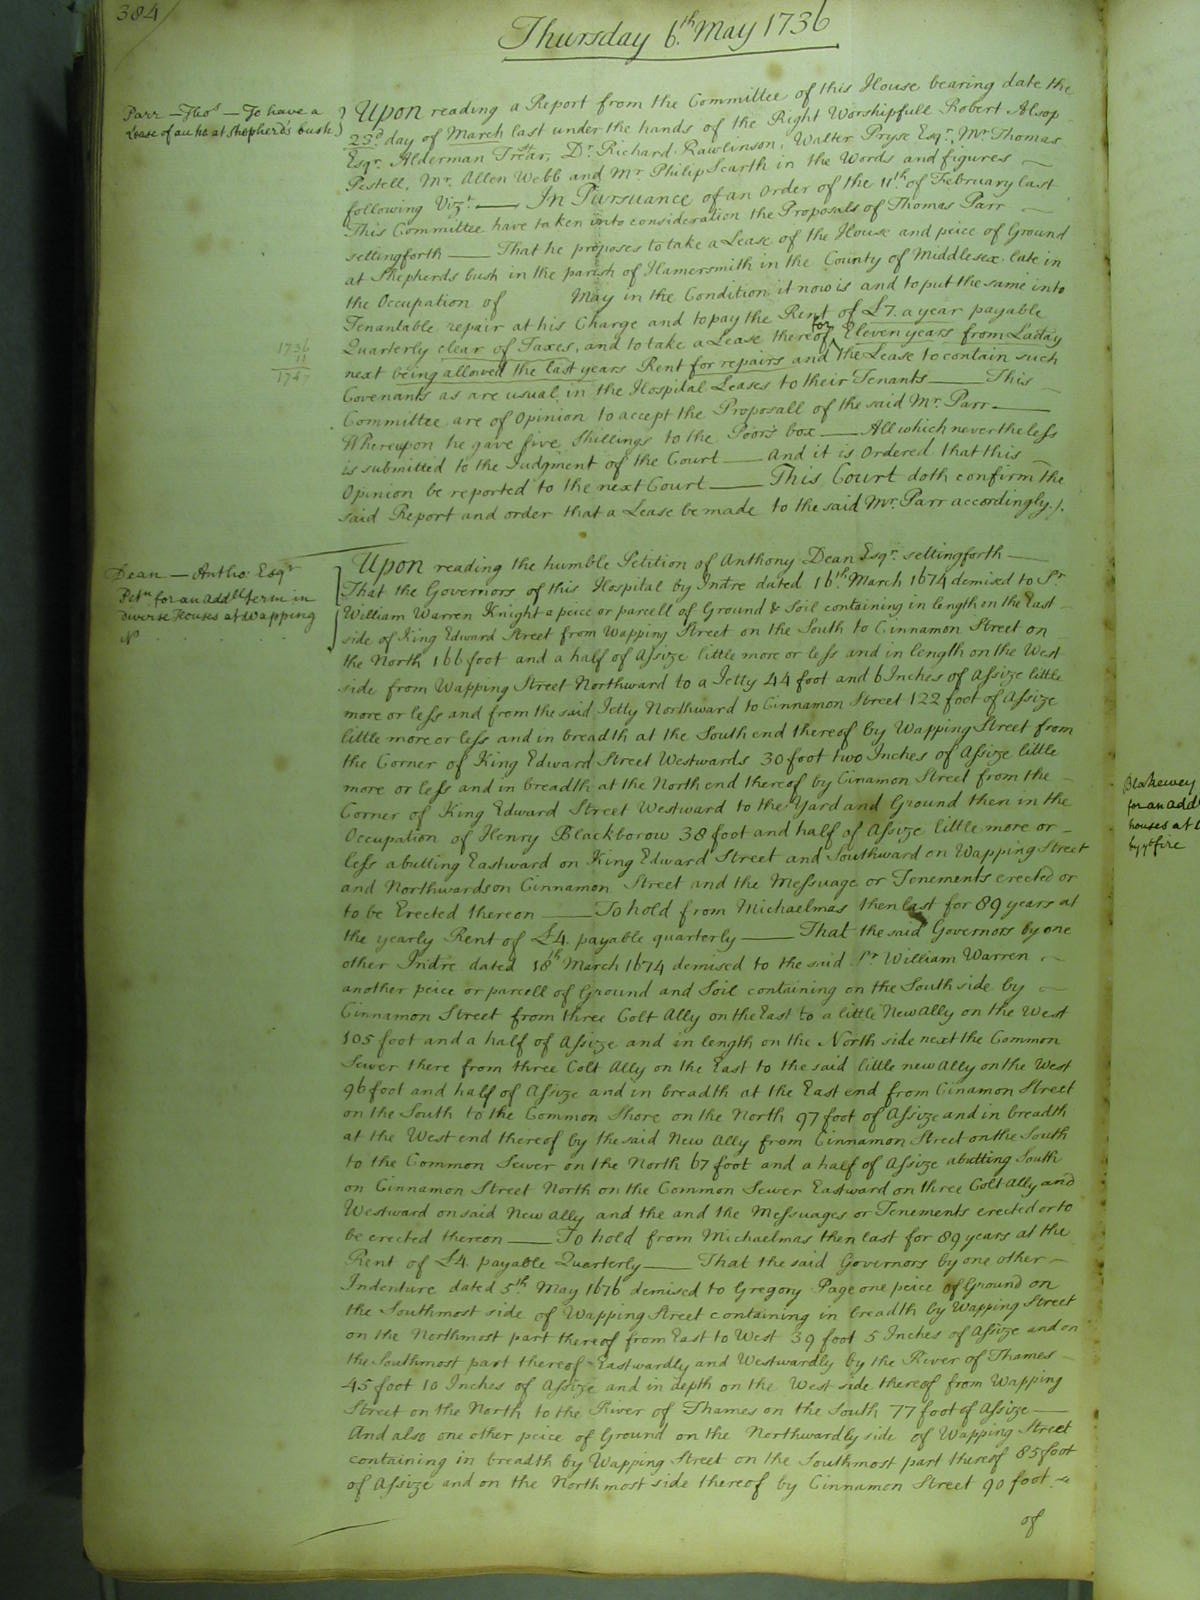 384
Thursday 6.th May 1736
Parr — Thos. — To have a
Lease of an ho. at Shepherds bush
Upon reading a Report from the Committee of this House bearing date the
23d. day of March last under the hands of the Right Worshipfull Robert Alsop
Esqr. Alderman Trear, Dr. Richard Rawlinson, Walter Pryse Esqr., Mr. Thomas
Pestell, Mr. Allen Webb and Mr. Philip Scarth in the Words and figures
following Vizt. — In Pursuance of an Order of the 11th. of February last
This Committee have taken into consideration the Proposals of Thomas Parr
settingforth — That he proposes to take a Lease of the House and peice of Ground
at Shepherds bush in the parish of Hamersmith in the County of Middlesex late in
the Occupation of May in the Condition it now is and to put the same into
Tenantable repair at his Charge and to pay the Rent of £7. a year payable
Quarterly clear of Taxes, and to take a Lease thereof for Eleven years from Laday
1736
11
1747
next being allowed the last years Rent for repairs and the Lease to contain such
Covenants as are usual in the Hospital Leases to their Tenants — This
Committee are of Opinion to accept the Proposall of the said Mr. Parr —
Whereupon he gave five Shillings to the Poor's box — All which nevertheless
is submitted to the Judgment of the Court — And it is Ordered that this
Opinion be reported to the next Court — This Court doth confirm the
said Report and order that a Lease be made to the said Mr. Parr accordingly./.
Dean — Antho: Esqr
Petn. for an addl. term in
diverse Houses at Wapping
Upon reading the humble Petition of Anthony Dean Esqr. settingforth —
That the Governors of this Hospital by Indre dated 16th March 1674 demised to Sr
William Warren Knight a peice or parcell of Ground & Soil containing in length on the East
side of King Edward Street from Wapping Street on the South to Cinnamon Street on
the North 166 foot and a half of Assize little more or less and in length on the West
side from Wapping Street Northward to a Jetty 44 foot and 6 Inches of Assize little
more or less and from the said Jetty Northward to Cinnamon Street 122 foot of Assize
little more or less and in breadth at the South end thereof by Wapping Street from
the Corner of King Edward Street Westwards 30 foot two Inches of Assize little
more or less and in breadth at the North end thereof by Cinamon Street from the
Corner of King Edward Street Westward to the Yard and Ground then in the
Occupation of Henry Blackborow 38 foot and half of Assize little more or
less abutting Eastward on King Edward Street and Southward on Wapping Street
and Northwards on Cinnamon Street and the Messuage or Tenements erected or
to be Erected thereon — To hold from Michaelmas then last for 89 years at
the yearly Rent of £4. payable quarterly — That the said Governors by one
other Indre dated 18th March 1674 demised to the said Sr William Warren
another peice or parcell of Ground and Soil containing on the South side by
Cinnamon Street from three Colt Ally on the East to a little New Ally on the West
105 foot and a half of Assize and in length on the North side next the Common
Sewer there from three Colt Ally on the East to the said little new Ally on the West
96 foot and half of Assize and in breadth at the East end from Cinamon Street
on the South to the Common Shore on the North 97 foot of Assize and in breadth
at the West end thereof by the said New Ally from Cinnamon Street on the South
to the Common Sewer on the North 67 foot and a half of Assize abutting South
on Cinnamon Street North on the Common Sewer Eastward on three Colt Ally and
Westward on said New Ally and the and the Messuages or Tenements erected or to
be erected thereon — To hold from Michaelmas then last for 89 years at the
Rent of £4. payable Quarterly — That the said Governors by one other
Indenture dated 5th. May 1676 demised to Gregory Page one peice of Ground on
the Southmost side of Wapping Street containing in breadth by Wapping Street
on the Northmost part thereof from East to West 39 foot 5 Inches of Assize and on
the Southmost part thereof Eastwardly and Westwardly by the River of Thames
45 foot 10 Inches of Assize and in depth on the West side thereof from Wapping
Street on the North to the River of Thames on the South 77 foot of Assize —
And also one other peice of Ground on the Northwardly side of Wapping Street
containing in breadth by Wapping Street on the Southmost part thereof 85 foot
of Assize and on the Northmost side thereof by Cinnamon Street 90 foot
of
for an add
houses at
by ye fire